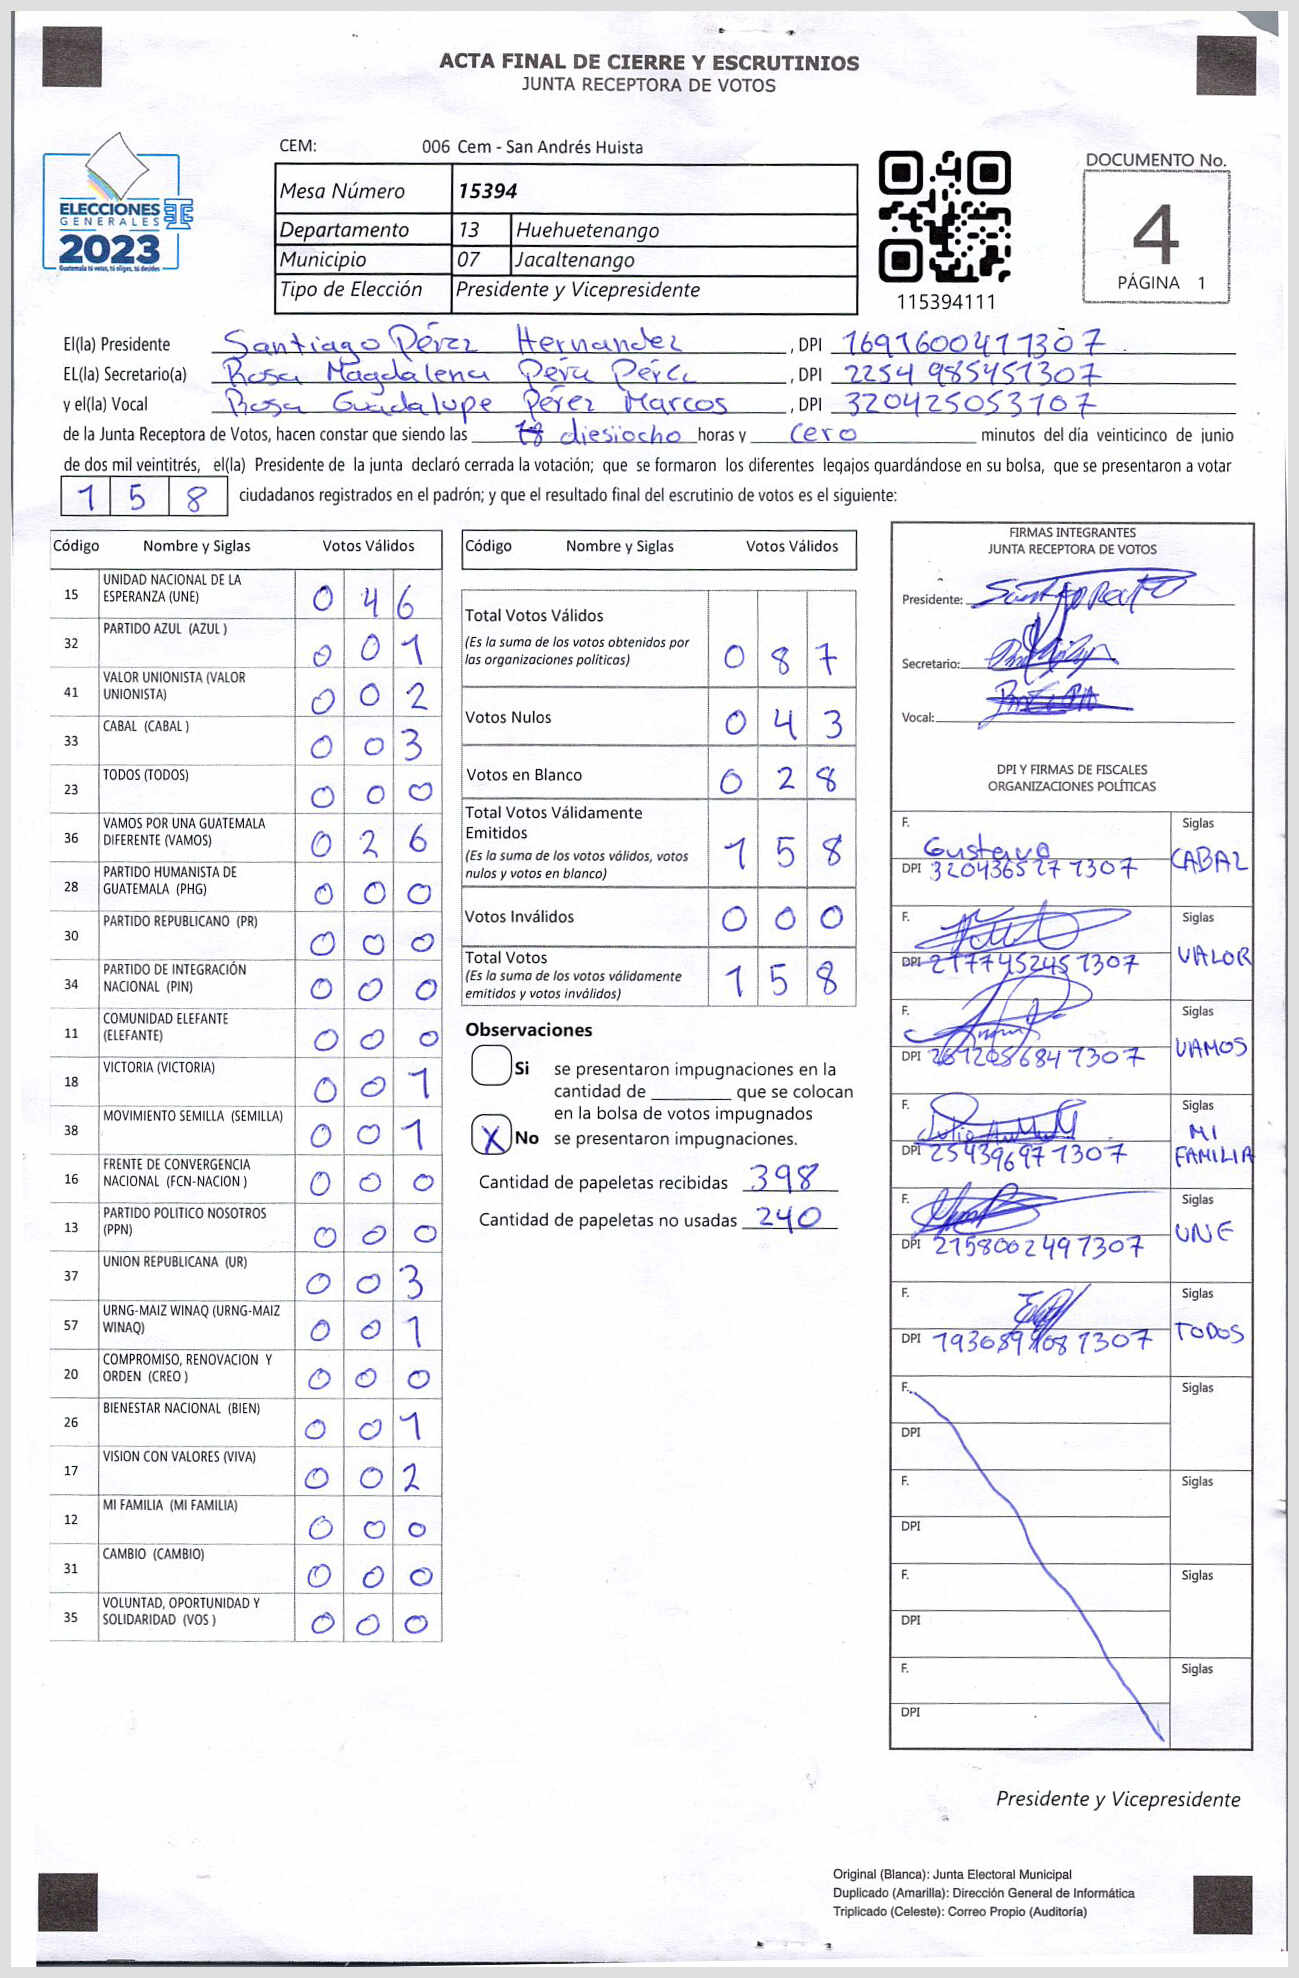 ACTA FINAL DE CIERRE Y ESCRUTINIOS
JUNTA RECEPTORA DE VOTOS
ELECCIONES
GENERALES
2023
Guatemala tú votas, tú eliges, tú decides
CEM: 006 Cem - San Andrés Huista
Mesa Número 15394
Departamento 13 Huehuetenango
Municipio 07 Jacaltenango
Tipo de Elección Presidente y Vicepresidente
115394111
DOCUMENTO No.
4
PÁGINA 1
El(la) Presidente Santiago Pérez Hernandez, DPI 1691600411307
EL(la) Secretario(a) Rosa Magdalena Pérez Pérez, DPI 2254 985451307
y el(la) Vocal Rosa Guadalupe Pérez Marcos, DPI 320425053107
de la Junta Receptora de Votos, hacen constar que siendo las 18 diesiocho horas y cero minutos del día veinticinco de junio
de dos mil veintitrés, el(la) Presidente de la junta declaró cerrada la votación; que se formaron los diferentes legajos guardándose en su bolsa, que se presentaron a votar
1 5 8 ciudadanos registrados en el padrón; y que el resultado final del escrutinio de votos es el siguiente:
Código Nombre y Siglas Votos Válidos
15 UNIDAD NACIONAL DE LA ESPERANZA (UNE) 0 4 6
32 PARTIDO AZUL (AZUL ) 0 0 1
41 VALOR UNIONISTA (VALOR UNIONISTA) 0 0 2
33 CABAL (CABAL ) 0 0 3
23 TODOS (TODOS) 0 0 0
36 VAMOS POR UNA GUATEMALA DIFERENTE (VAMOS) 0 2 6
28 PARTIDO HUMANISTA DE GUATEMALA (PHG) 0 0 0
30 PARTIDO REPUBLICANO (PR) 0 0 0
34 PARTIDO DE INTEGRACIÓN NACIONAL (PIN) 0 0 0
11 COMUNIDAD ELEFANTE (ELEFANTE) 0 0 0
18 VICTORIA (VICTORIA) 0 0 1
38 MOVIMIENTO SEMILLA (SEMILLA) 0 0 1
16 FRENTE DE CONVERGENCIA NACIONAL (FCN-NACION ) 0 0 0
13 PARTIDO POLITICO NOSOTROS (PPN) 0 0 0
37 UNION REPUBLICANA (UR) 0 0 3
57 URNG-MAIZ WINAQ (URNG-MAIZ WINAQ) 0 0 1
20 COMPROMISO, RENOVACION Y ORDEN (CREO ) 0 0 0
26 BIENESTAR NACIONAL (BIEN) 0 0 1
17 VISION CON VALORES (VIVA) 0 0 2
12 MI FAMILIA (MI FAMILIA) 0 0 0
31 CAMBIO (CAMBIO) 0 0 0
35 VOLUNTAD, OPORTUNIDAD Y SOLIDARIDAD (VOS ) 0 0 0
Código Nombre y Siglas Votos Válidos
Total Votos Válidos 0 8 7
(Es la suma de los votos obtenidos por
las organizaciones políticas)
Votos Nulos 0 4 3
Votos en Blanco 0 2 8
Total Votos Válidamente
Emitidos 1 5 8
(Es la suma de los votos válidos, votos
nulos y votos en blanco)
Votos Inválidos 0 0 0
Total Votos 1 5 8
(Es la suma de los votos válidamente
emitidos y votos inválidos)
Observaciones
Si se presentaron impugnaciones en la
cantidad de ________ que se colocan
en la bolsa de votos impugnados
X No se presentaron impugnaciones.
Cantidad de papeletas recibidas 398
Cantidad de papeletas no usadas 240
FIRMAS INTEGRANTES
JUNTA RECEPTORA DE VOTOS
Presidente:
Secretario:
Vocal:
DPI Y FIRMAS DE FISCALES
ORGANIZACIONES POLÍTICAS
F. Gustavo Siglas
DPI 3204365271307 CABAL
F. Siglas
DPI 2177452451307 VALOR
F. Siglas
DPI 2612056841307 VAMOS
F. Siglas
DPI 254396971307 MI FAMILIA
F. Siglas
DPI 2158002491307 UNE
F. Siglas
DPI TODOS
F. Siglas
DPI
F. Siglas
DPI
F. Siglas
DPI
F. Siglas
DPI
Presidente y Vicepresidente
Original (Blanca): Junta Electoral Municipal
Duplicado (Amarilla): Dirección General de Informática
Triplicado (Celeste): Correo Propio (Auditoría)